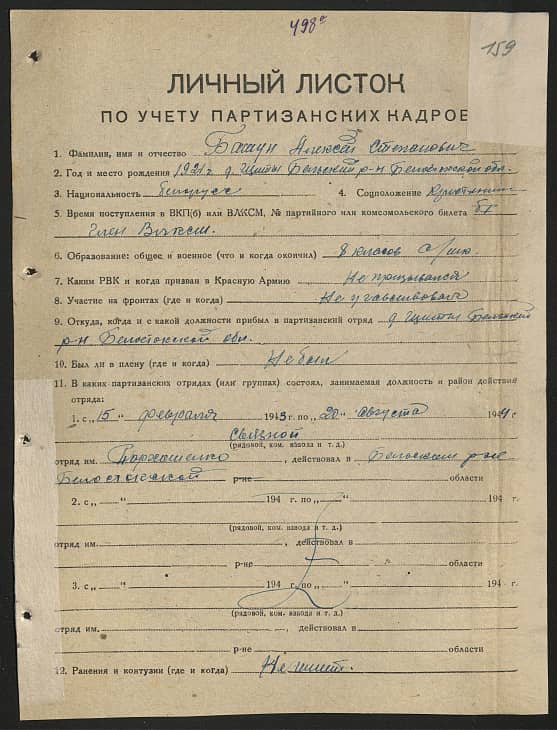 498а
159
ЛИЧНЫЙ ЛИСТОК
ПО УЧЕТУ ПАРТИЗАНСКИХ КАДРОВ
1. Фамилия, имя и отчество Алексей Степанович
2. Год и место рождения 1921 г. д. Щиты Бельский р-н Белостокской обл.
3. Национальность Белорусс 4. Соцположение
5. Время поступления в ВКП(б) или ВЛКСМ, № партийного или комсомольского билета
Член ВЛКСМ.
6. Образование: общее и военное (что и когда окончил) 8 классов
7. Каким РВК и когда призван в Красную Армию Не призывался
8. Участие на фронтах (где и когда) Не участвовал
9. Откуда, когда и с какой должности прибыл в партизанский отряд д. Щиты Бельский
р-н Белостокской обл.
10. Был ли в плену (где и когда) Не был
11. В каких партизанских отрядах (или группах) состоял, занимаемая должность и район действия
отряда:
1. с „15“ февраля 1943 г. по „20“ августа 1944 г.
Связной
(рядовой, ком. взвода и т. д.)
отряд им. Пархоменко, действовал в Бельском р-не
Белостокской р-не области
2. с „ “ 194 г. по „ “ 194 г.
(рядовой, ком. взвода и т. д.)
отряд им. , действовал в
р-не области
3. с „ “ 194 г. по „ “ 194 г.
(рядовой, ком. взвода и т. д.)
отряд им. , действовал в
р-не области
12. Ранения и контузии (где и когда) Не имеет.